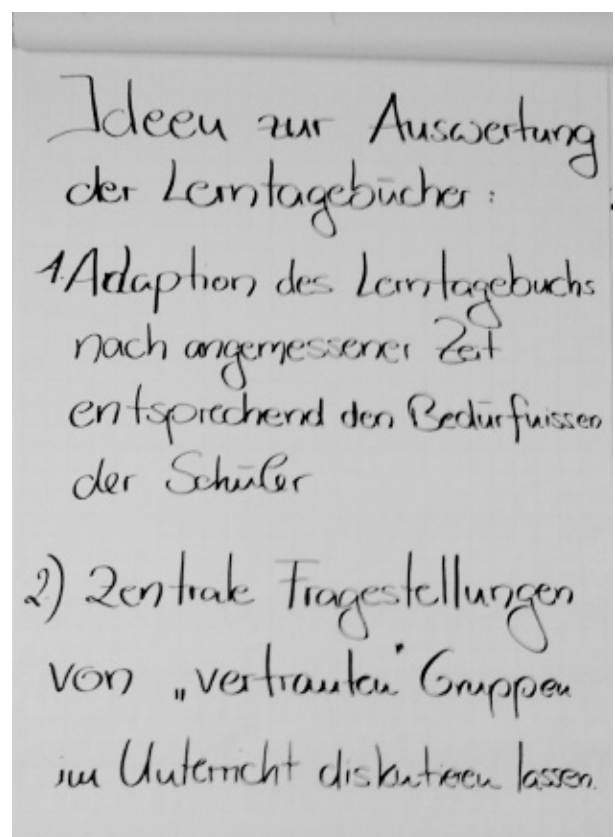 Ideen zur Auswertung
der Lerntagebücher:
1. Adaption des Lerntagebuchs
nach angemessener Zeit
entsprechend den Bedürfnissen
der Schüler
2) Zentrale Fragestellungen
von „vertrauten" Gruppen
im Unterricht diskutieren lassen.